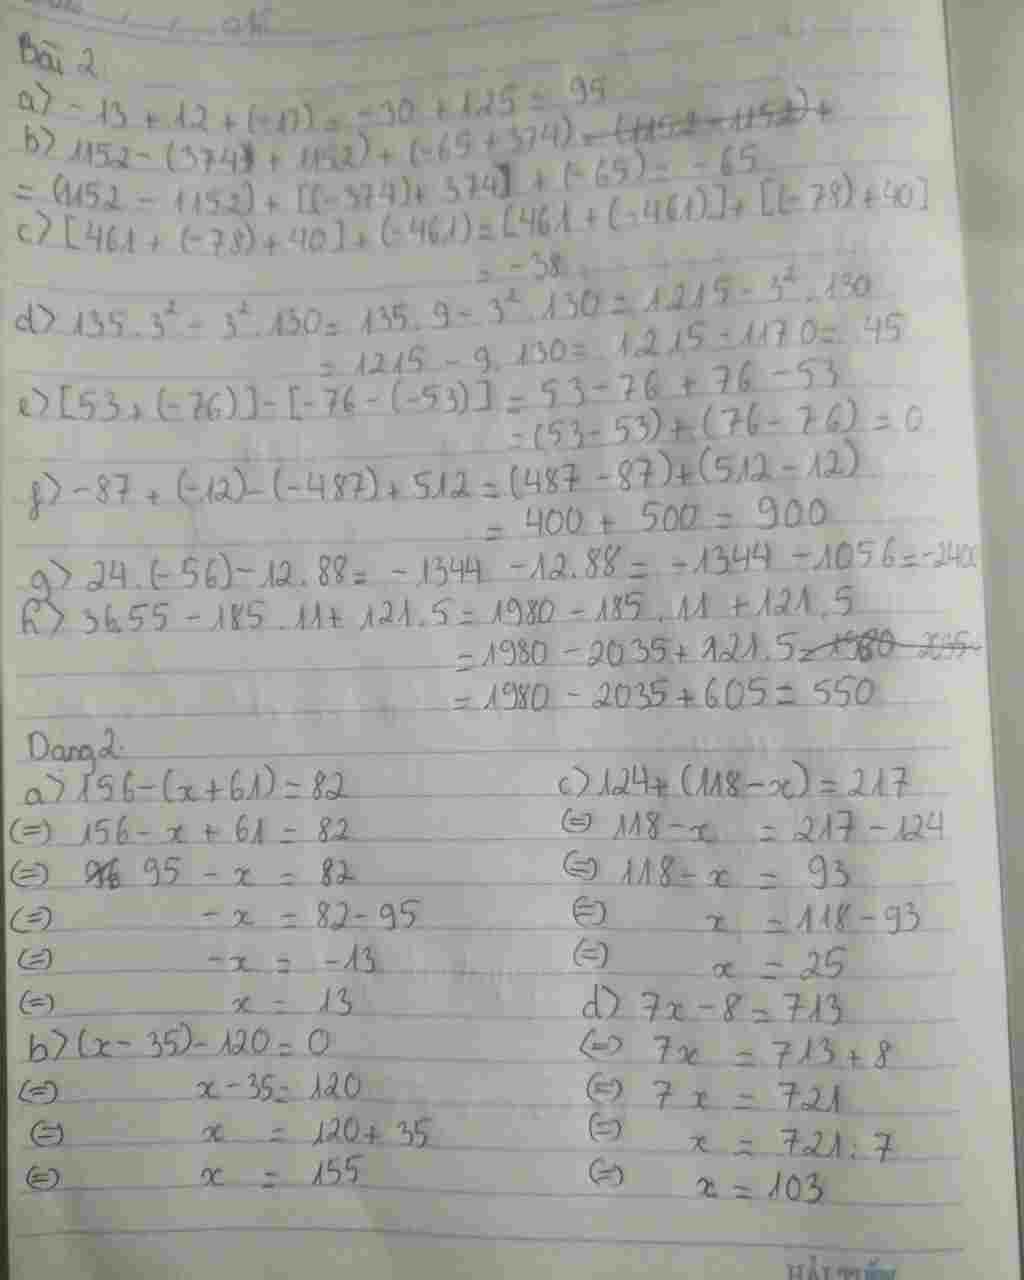 Bài 2
a) -13 + 12 + (-17) = -30 + 125 = 95
b) 1152 - (374 + 1152) + (-65 + 374) = (1152 - 1152) +
= (1152 - 1152) + [(-374) + 374] + (-65) = -65
c) [461 + (-78) + 40] + (-461) = [461 + (-461)] + [(-78) + 40]
= -38
d) 135.3² - 3².130 = 135.9 - 3².130 = 1215 - 3².130
= 1215 - 9.130 = 1215 - 1170 = 45
e) [53 + (-76)] - [-76 - (-53)] = 53 - 76 + 76 - 53
= (53 - 53) + (76 - 76) = 0
f) -87 + (-12) - (-487) + 512 = (487 - 87) + (512 - 12)
= 400 + 500 = 900
g) 24.(-56) - 12.88 = -1344 - 12.88 = -1344 - 1056 = -2400
h) 36.55 - 185.11 + 121.5 = 1980 - 185.11 + 121.5
= 1980 - 2035 + 121.5 = 1980
= 1980 - 2035 + 605 = 550
Dạng 2
a) 156 - (x + 61) = 82
(=) 156 - x + 61 = 82
(=) 95 - x = 82
(=) -x = 82 - 95
(=) -x = -13
(=) x = 13
b) (x - 35) - 120 = 0
(=) x - 35 = 120
(=) x = 120 + 35
(=) x = 155
c) 124 + (118 - x) = 217
(=) 118 - x = 217 - 124
(=) 118 - x = 93
(=) x = 118 - 93
(=) x = 25
d) 7x - 8 = 713
(=) 7x = 713 + 8
(=) 7x = 721
(=) x = 721 : 7
(=) x = 103
HẢI TIẾN